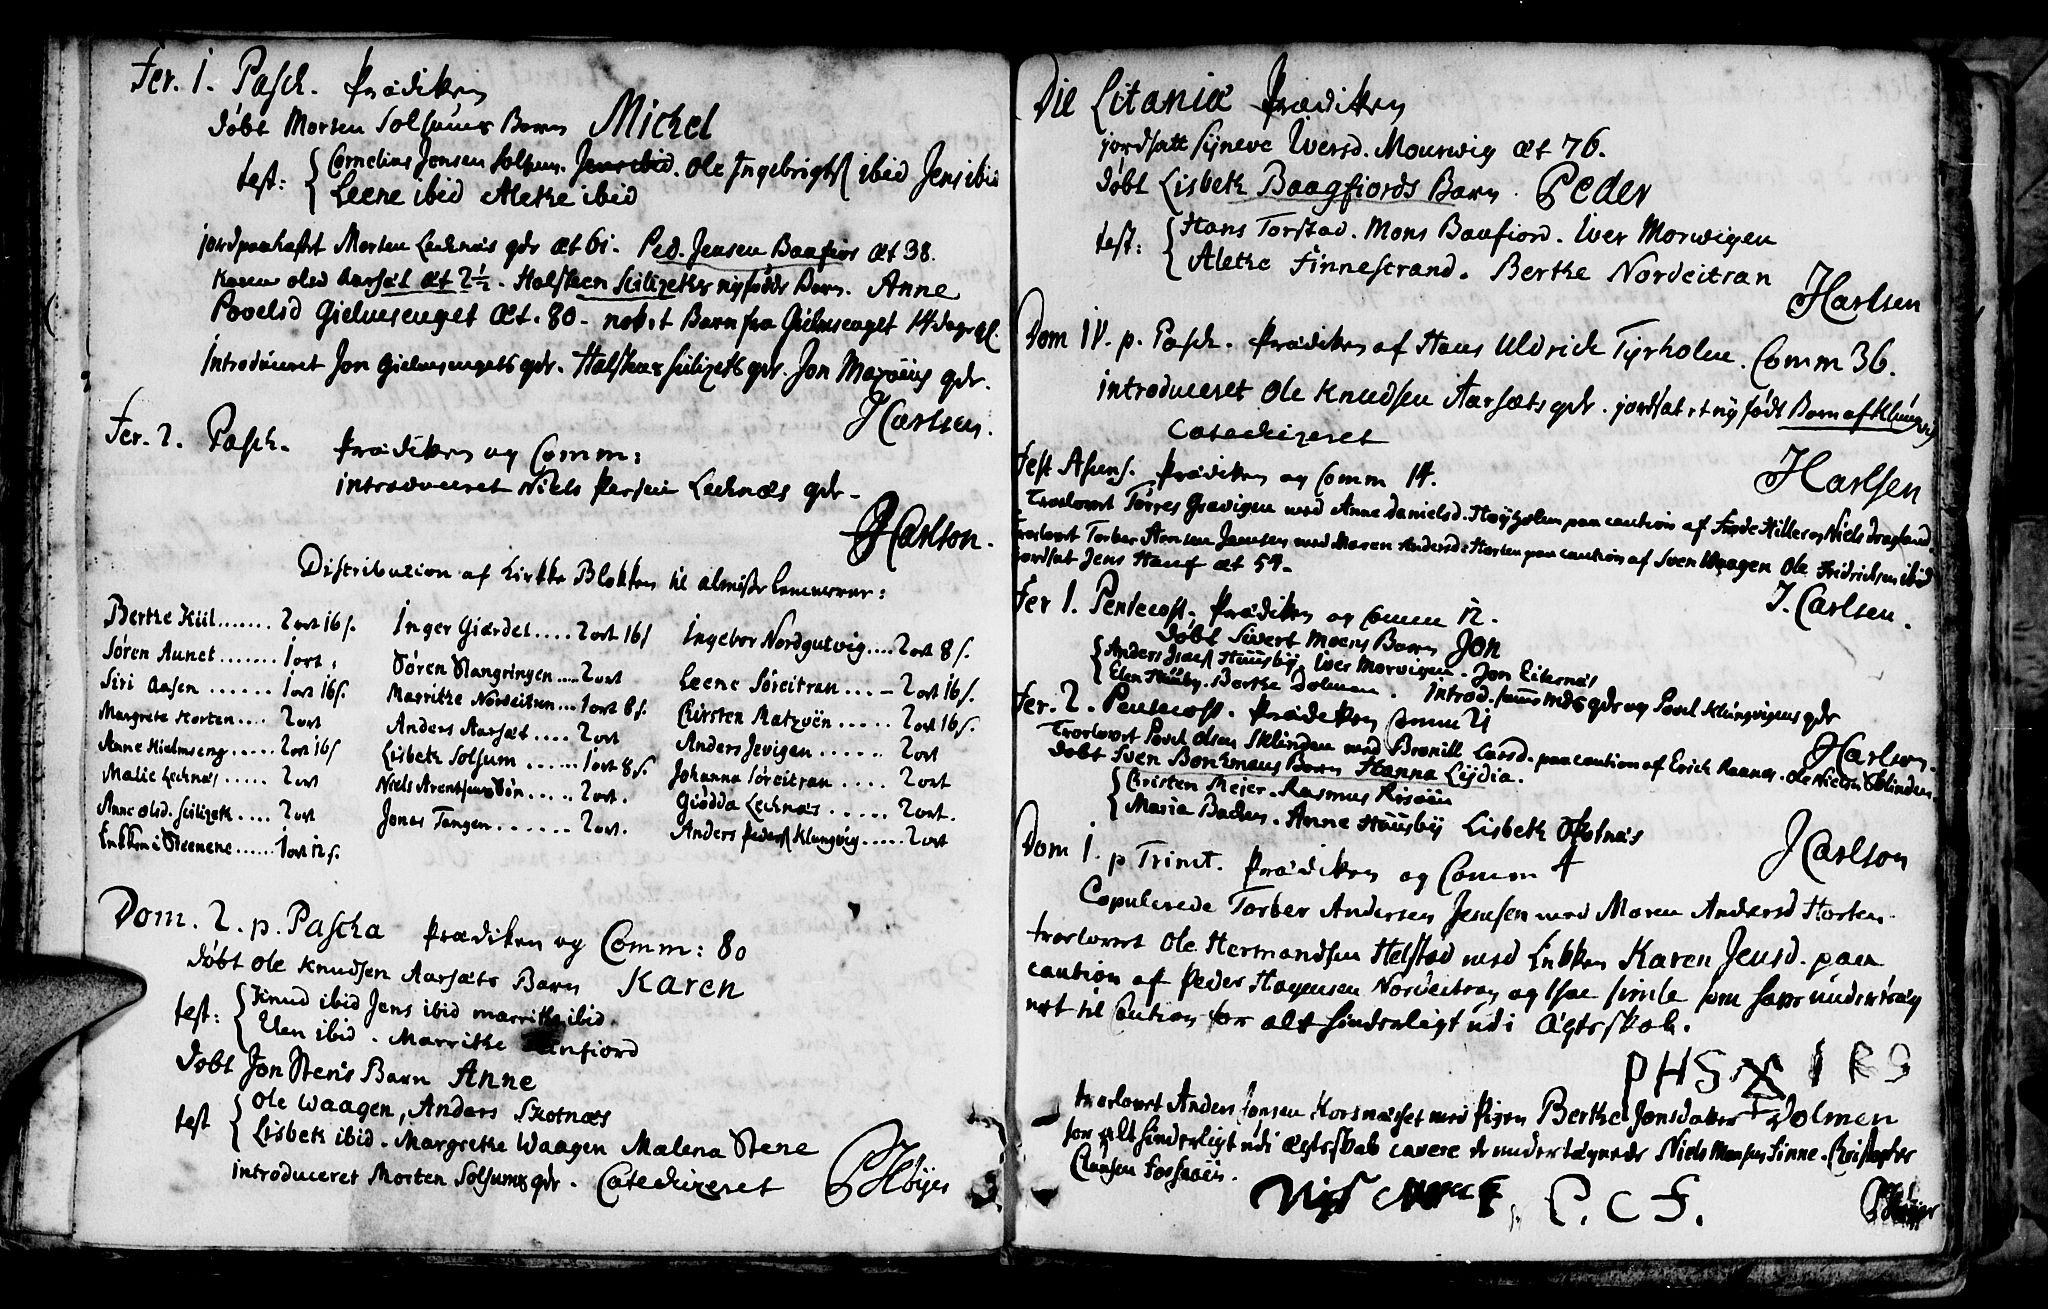 Fer. 1. Pasch. Prædiken
døbt Morten Solsums Barn Michel
test: Cornelius Jensen Solsum. Jens ibid. Ole Ingebrigts. ibid Jens ibid
Leene ibid Alethe ibid
jordpaakastet Morten Lecknæs qdr æt 61. Ped. Jensen Baafior æt 38.
Karen olsd Aarsæt æt 2½. Halsteen Seilizeths nyfødde Barn. Anne
Povelsd Gielmsenget Æt. 80 - nok et Barn fra Gielmsenget 14 dage gl.
Introduceret Jon Gielmsengets qdr. Halsteen Seilizets qdr. Jon Marøens qdr.
J Carlsen.
Fer. 2. Pasch. Prædiken og Comm:
introduceret Niels Persen Lecknæs qdr -
J Carlson.
Distribution af Kirke Blokken til almisse Lemmerne:
Berthe Kiil....... 2 ort 16 s. Inger Giærdet.... 2 ort 16 s Ingebor Nordgutvig.... 2 ort 8 s.
Søren Aunet....... 1 ort. Søren Stangringen.... 2 ort Leene Søreitran.... 2 ort 16 s.
Siri Aasen...... 1 ort 16 s. Marrithe Nordeitran... 1 ort 8 s. Kirsten Matzøen..... 2 ort 16 s.
Margrete Horten.... 2 ort Anders Aarsæt.... 2 ort Anders Jevigen...... 2 ort
Anne Hielmseng..... 2 ort 16 s Lisbeth Solsum...... 1 ort 8 s. Johanna Søreitran.... 2 ort
Malie Lecknæs..... 2 ort Niels Arentsens Søn..... 2 ort. Giødda Lecknæs..... 2 ort.
Anne olsd. Seilizeth.... 2 ort Jonas Tangen...... 2 ort. Anders Peders. Klungvig..... 2 ort
Enkken i Steenene...... 1 ort 12 s.
Dom. 2. p. Pascha Prædiken og Comm: 80
døbt Ole Knudsen Aarsæts Barn Karen
test: Knud ibid Jens ibid marrithe ibid.
Elen ibid. Marrithe
Døbt Jon Stens Barn Anne
test Ole Waagen, Anders Skotnæs
Lisbeth ibid. Margrethe Waagen Malena Stene
introduceret Morten Solsums qdr. Catechizeret P Høyer
Die Litaniæ Prædiken
jordsatt Synneve Iversd. Mourwig æt 76.
døbt Lisbeth Baagfiords Barn. Peder
test: Hans Torstad. Mons Baafiord. Iver Morwigen
Alethe Finnestrand. Berthe Nordeitran
J Karlsen
Dom IV. p. Pasch. Prædiken af Hans Uldrich Tyrholm. Comm 36.
introduceret Ole Knudsen Aarsæts qdr. jordsat et ny født Barn af Klungvig
Catechizeret
J Karlsen
Fest Ascens. Prædiken og Comm 14.
Trolovet Torres Grævigen med Anne Danielsd. Høyholm paa caution af Hiller og Niels Dragland.
Trolovet Torber Jensen med Maren Andersd: Horten paa caution af Sven Waagen Ole Fridrichsen ibid
jordsat Jens Hauf æt 59 -
J. Carlsen.
Fer 1. Pentecost. Prædiken og Comm 12.
Døbt Sivert Moens Barn Jon
Anders Huusby. Iver Morvigen. Jon Eikenæs
Elen Huusby. Berthe Dolmen. Introd. qdr og Povel Klungvigens qdr
Fer. 2. Pentecost. Prædiken Comm 21
J Carlson.
Trolovet Povel Olsen Sklinden med Bronill Larsd. paa caution af Erich Raanes. Ole Nielsen Sklinden.
Døbt Sven Bonkmans Barn Hanna Lydia.
Christen Mejer. Rasmus Risøen
Maria Backen. Anne Huusby Lisbeth Skotnæs
J Carlson
Dom 1. p Trinit. Prædiken og Comm 4
Copulerede Torber Andersen Jensen med Maren Andersd Horten
trolovet Ole Hermandsen Helstad med Enken Karen Jensd. paa
caution af Peder Hagensen Nordeitran og som haver undertrog
net til Caution for alt hinderligt udi Ægteskab.
PHS I R S
trolovet Anders Jonsen Korsnæsset med Pigen Berthe Jonsdatter Dolmen
for alt hinderligt udi ægteskab cavere de undertegnede Niels Monsen Finne. Christopher
Clausen Fossøen.
C. C F.